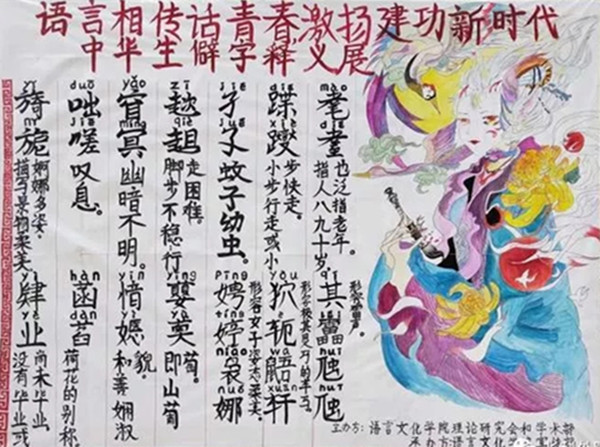 语言相传话青春激扬建功新时代
中华生僻字释义展
mào dié
耄耋
指人八九十岁。
也泛指老年。
dié xiè
蹀躞
小步行走或小
步快走。
jié jué
孑孓
蚊子幼虫。
趑趄
脚步不稳行
走困难。
yǎo míng
窅冥
幽暗不明。
duō jiē
咄嗟
叹息。
yǐ nǐ
旖旎
描写景物柔美
婀娜多姿。
其靁虺虺
形容雷声。
pīng tíng niǎo
娉婷袅娜
形容女子姿态柔美。
即山葡
yīn yì
愔嫕
和善娴淑
貌。
hàn
菡萏
荷花的别称
yì yè
肄业
没有毕业或
尚未毕业
主办方：语言文化学院理论研究会和学术部
承办方：语言文化学